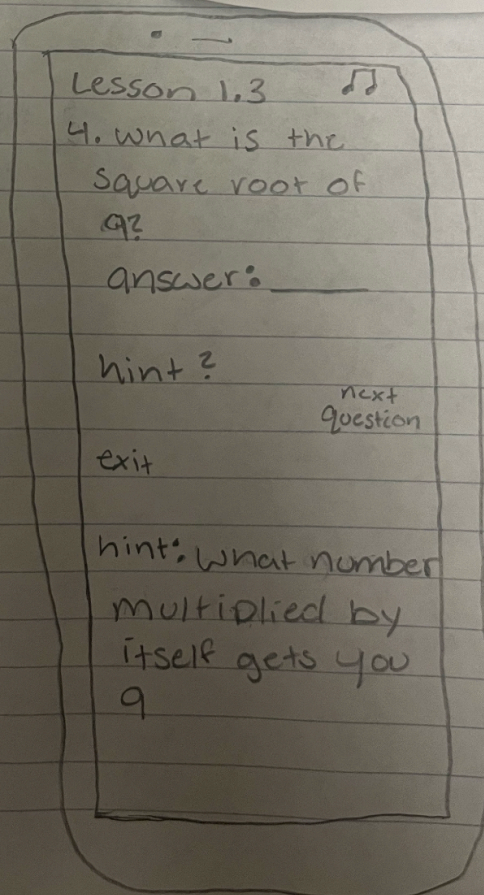 Lesson 1.3
4. What is the
square root of
9?
answer: ______
hint?
next
question
exit
hint: What number
multiplied by
itself gets you
9